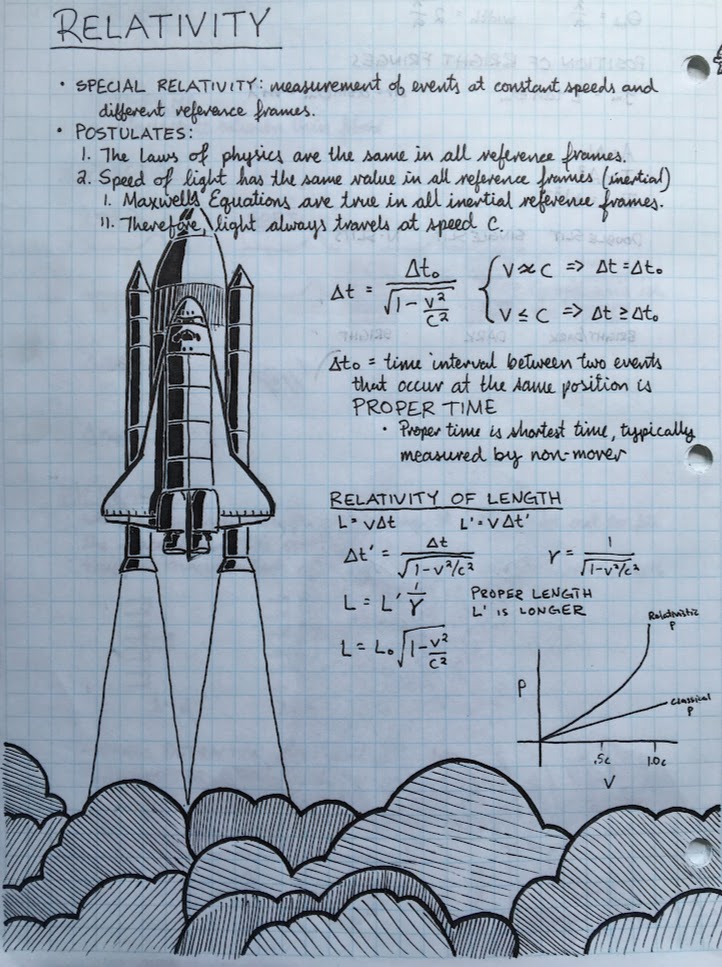 RELATIVITY
• SPECIAL RELATIVITY: measurement of events at constant speeds and
different reference frames.
• POSTULATES:
1. The laws of physics are the same in all reference frames.
2. Speed of light has the same value in all reference frames (inertial)
I. Maxwells Equations are true in all inertial reference frames.
II. Therefore, light always travels at speed C.
Δt = Δt₀ / √(1 - v²/c²) { V ≉ C => Δt = Δt₀
V ≤ C => Δt ≥ Δt₀
Δt₀ = time interval between two events
that occur at the same position is
PROPER TIME
• Proper time is shortest time, typically
measured by non-mover
RELATIVITY OF LENGTH
L = VΔt L' = VΔt'
Δt' = Δt / √(1 - v²/c²) γ = 1 / √(1 - v²/c²)
L = L' 1/γ PROPER LENGTH
L' IS LONGER
L = L₀ √(1 - v²/c²)
Relativistic
P
P
Classical
P
.5c 1.0c
V